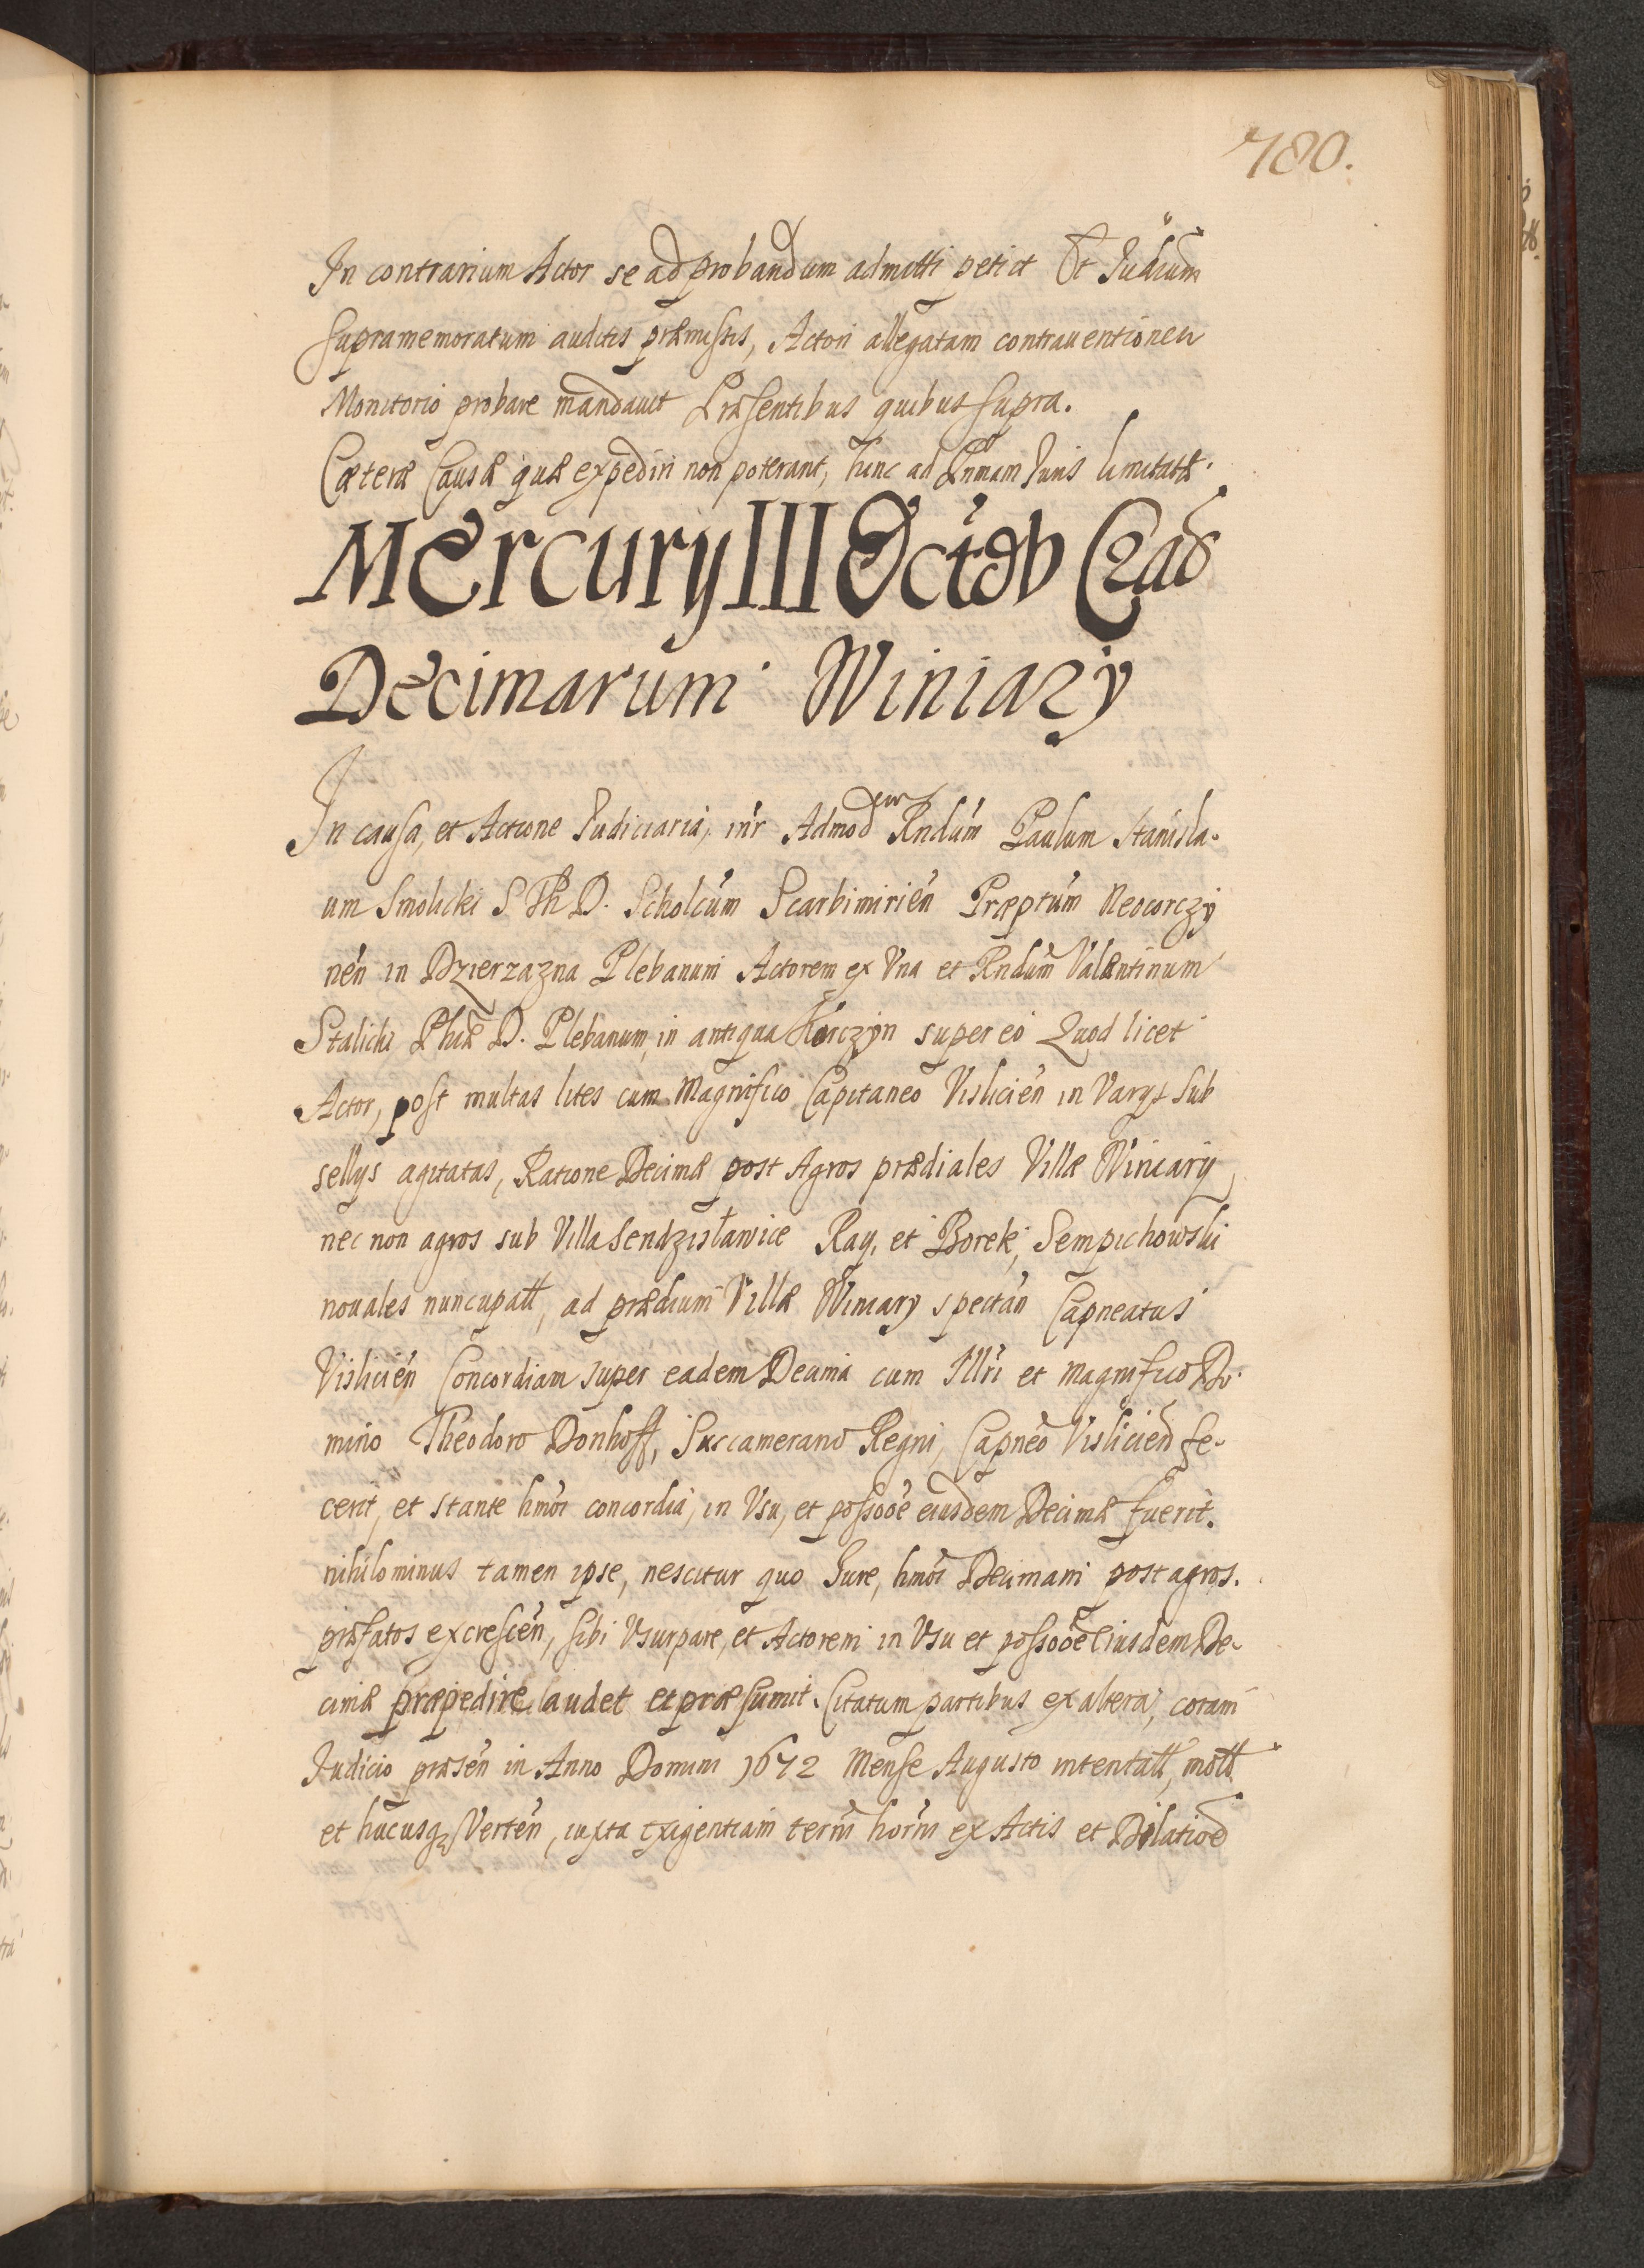 780.
In contrarium Actor se ad probandum admitti petiit Et Judicium
supramemoratum auditis præmissis, Actori allegatam contrauentionem
Monitorio probare mandauit Præsentibus quibus supra.
Cæteræ Causæ quæ expediri non poterant, hinc ad Prmam Juris limitatæ.
Mercury III Octob Crad
Decimarum Winiary
In causa, et Actione Judiciaria, int'r Admod Rndum Paulum Stanisla-
um Smolicki S Th D. Scholcum Scarbimirien Præptum Neocorczy
nen in Dzierzazna Plebanum Actorem ex Vna et Rndum Valentinum
Stalicki Phiæ D. Plebanum in antiqua Korczyn super eo Quod licet
Actor, post multas lites cum Magnifico Capitaneo Vislicien in Varys sub
sellys agitatas, Ratione Decimæ post Agros prædiales Villæ Winiary,
nec non agros sub Villa Sendzisławice Ray, et Borek, Sempichowski
nouales nuncupatt, ad prædium Villæ Winiary spectan Capneatus
Vislicien Concordiam super eadem Decima cum Illri et Magnifico Do-
mino Theodoro Donhoff, Succamerario Regni, Capneo Vislicien fe-
cerit, et stante hmoi concordia, in Vsu, et possooe eiusdem Decimæ fuerit.
nihilominus tamen ipse, nescitur quo Jure, hmoi Decimam post agros.
præfatos excrescen, sibi Vsurpare, et Actorem in Vsu et possooe eiusdem De-
cimæ præpedire audet et præsumit. Citatum partibus ex altera, coram
Judicio præsen in Anno Domini 1672 Mense Augusto intentatt, mott
et hucusq3 Verten, iuxta exigentiam termi horni ex Actis et Dilatioe